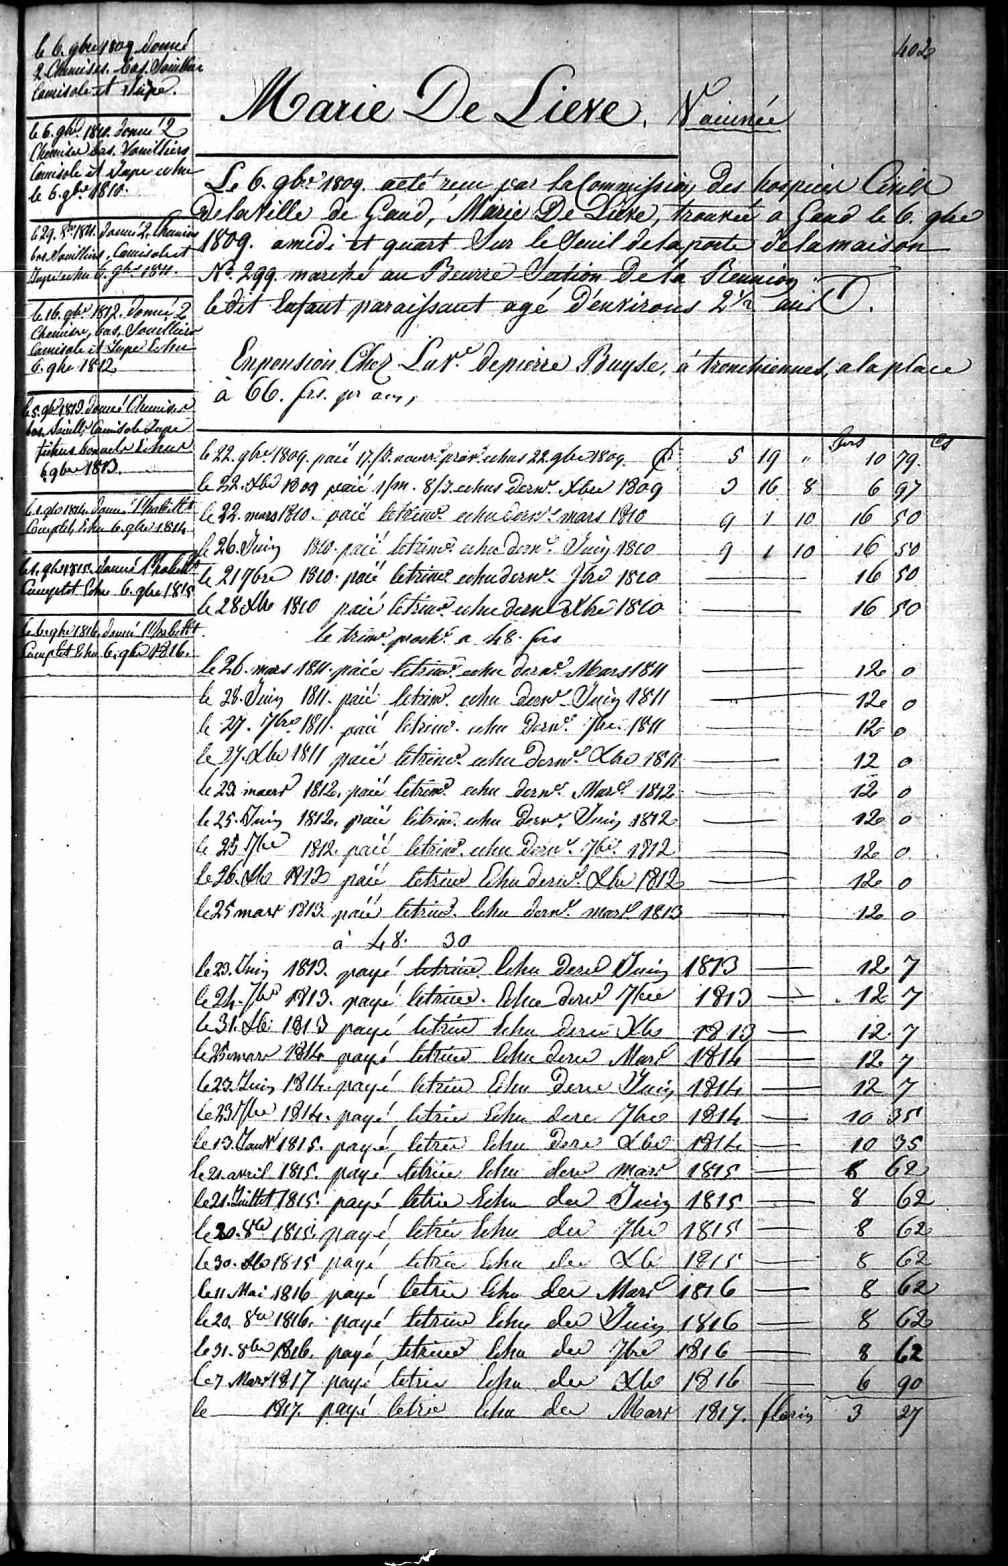 402
le 6. gbre 1809 donné
2 Chemises. bas. Souillier
Camisole et Jupe.
le 6. gbre 1810. donné 2
Chemise bas. Souilliers
Camisole et Jupe echu
le 6. gbre 1810.
le 29. 8bre 1811. donné 2. Chemises
bas Souilliers, Camisole et
Jupe echu 6. gbre 1811.
le 16. gbre 1812. donné 2
Chemise, bas, Souilliers
Camisole et Jupe Echu
6. gbre 1812
le 5. gbre 1813. donné Chemise
bas. Souillr Camisole Jupe
fichus bonnets Echus
6 gbre 1813.
le 1. gbre 1814. donné l'habillt
Complet, Echu 6. gbre 1814
le 1. gbre 1815. donné l'habillt
Complet Echu 6. gbre 1815
le 6. gbre 1816. donné l'habillt
Complet Echu 6. gbre 1816.
Marie De Lieve. Vaccinée
Le 6. gbre 1809. a eté reçu par la Commission des hospices Civils
de la Ville de Gand, Marie De Lieve, trouvée a Gand le 6. gbre
1809. a midi et quart Sur le Seuil de la porte de la maison
No. 299. marché au Beurre Section de la Reunion
le dit Enfant paraissant agé d'environs 2 1/2 ans
En pension Chez La Ve. de pierre Buyse, á tronchiennes, a la place
á 66. frs. pr an,
frs cs
le 22. gbre 1809. paié echus 22. gbre 1809. 5 19 " 10 79.
le 22. Xbre 1809 paié 1/m. 8/J. echus dernr. Xbre 1809 3 16 8 6 97
le 22. mars 1810. paié le trimr. echu dernr. mars 1810 9 1 10 16 50
le 26. Juin 1810. paié le trimr. echu dernr. Juin 1810 9 1 10 16 50
le 21 7bre 1810. paié le trimr. echu dernr. 7bre 1810 — 16 50
le 28 Xbre 1810 paié le trimr. echu dernr Xbre 1810 — 16 50
le trimr. proch. a 48. frs
le 26. mars 1811. paié le trimr. echu dernr. Mars 1811 — 12 0
le 28. Juin 1811. paié le trimr. echu dernr. Juin 1811 — 12 0
le 27. 7bre 1811. paié le trimr. echu dernr. 7bre 1811 — 12 0
le 27. Xbre 1811 paié le trimr. echu dernr. Xbre 1811 — 12 0
le 23 mars 1812. paié le trimr. echu dernr. Mars 1812 — 12 0
le 25. Juin 1812. paié le trimr. echu dernr. Juin 1812 — 12 0
le 25 7bre 1812. paié le trimr. echu dernr. 7bre. 1812 — 12 0
le 26. Xbre 1812 paié le trimr Echu dernr. Xbre 1812 — 12 0
le 25 mars 1813. paié le trimr. Echu dernr. mars 1813 — 12 0
à 48. 30
le 23. Juin 1813. payé le trim. Echu dernr Juin 1813 — 12 7
le 24. 7bre 1813. payé le trim. Echu dernr 7bre 1813 — 12 7
le 31. Xbre 1813 payé le trim Echu dernr Xbre 1813 — 12. 7
le 25 mars 1814 payé le trim Echu dernr Mars 1814 — 12 7
le 23. Juin 1814. payé le trim Echu dernr Juin 1814 — 12 7
le 23 7bre 1814. payé le trim Echu der 7bre 1814 — 10 35
le 13. Janr 1815. payé, le trim Echu der Xbre 1814 — 10 35
le 21. avril 1815. payé le trim Echu der mars 1815 — 8 62
le 21. Juillet 1815. payé le trim Echu der Juin 1815 — 8 62
le 20. 8bre 1815. payé le trim Echu der 7bre 1815 — 8 62
le 30. Xbre 1815 payé le trim Echu der Xbre 1815 — 8 62
le 11 Mai 1816 payé le trim Echu der Mars 1816 — 8 62
le 20. 8bre 1816. payé le trim Echu der Juin 1816 — 8 62
le 31. 8bre 1816. payé, le trim Echu der 7bre 1816 — 8 62
le 7 Mars 1817 payé le trim Echu der Xbre 1816 — 6 90
le — 1817. payé le trim Echu der Mars 1817. florin 3 27